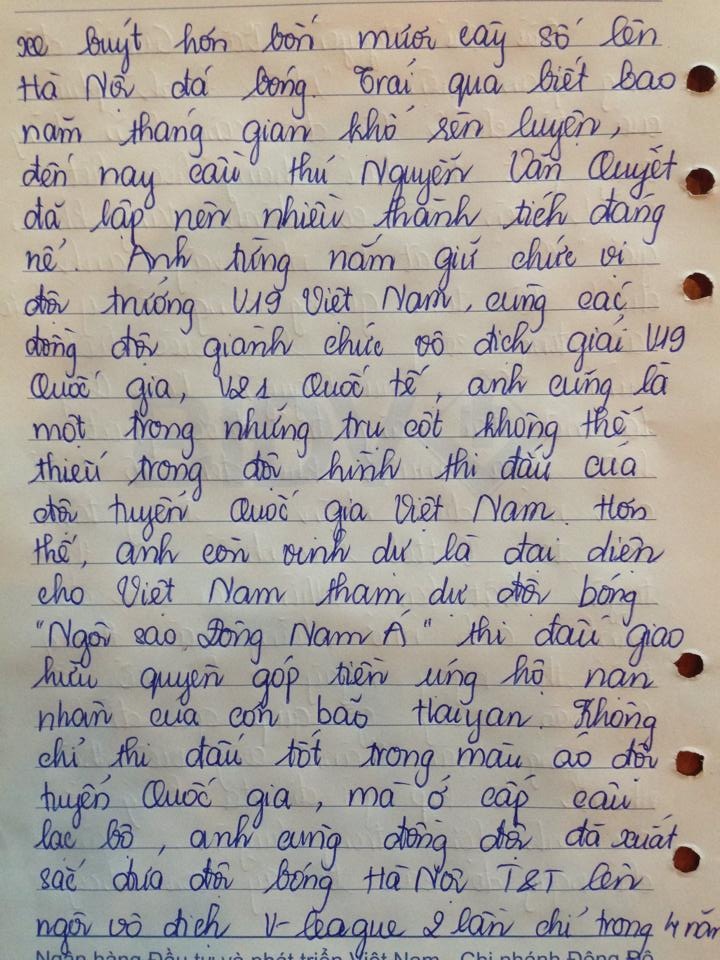 xe buýt hơn bốn mươi cây số lên
Hà Nội đá bóng. Trải qua biết bao
năm tháng gian khổ rèn luyện,
đến nay cầu thủ Nguyễn Văn Quyết
đã lập nên nhiều thành tích đáng
nể. Anh từng nắm giữ chức vị
đội trưởng U19 Việt Nam, cùng các
đồng đội giành chức vô địch giải U19
Quốc gia, U21 Quốc tế, anh cũng là
một trong những trụ cột không thể
thiếu trong đội hình thi đấu của
đội tuyển Quốc gia Việt Nam. Hơn
thế, anh còn vinh dự là đại diện
cho Việt Nam tham dự đội bóng
"Ngôi sao Đông Nam Á" thi đấu giao
hữu quyên góp tiền ủng hộ nạn
nhân của cơn bão Haiyan. Không
chỉ thi đấu tốt trong màu áo đội
tuyển Quốc gia, mà ở cấp câu
lạc bộ, anh cùng đồng đội đã xuất
sắc đưa đội bóng Hà Nội T&T lên
ngôi vô địch V-league 2 lần chỉ trong 4 năm
Ngân hàng Đầu tư và phát triển Việt Nam - Chi nhánh Đông Đô